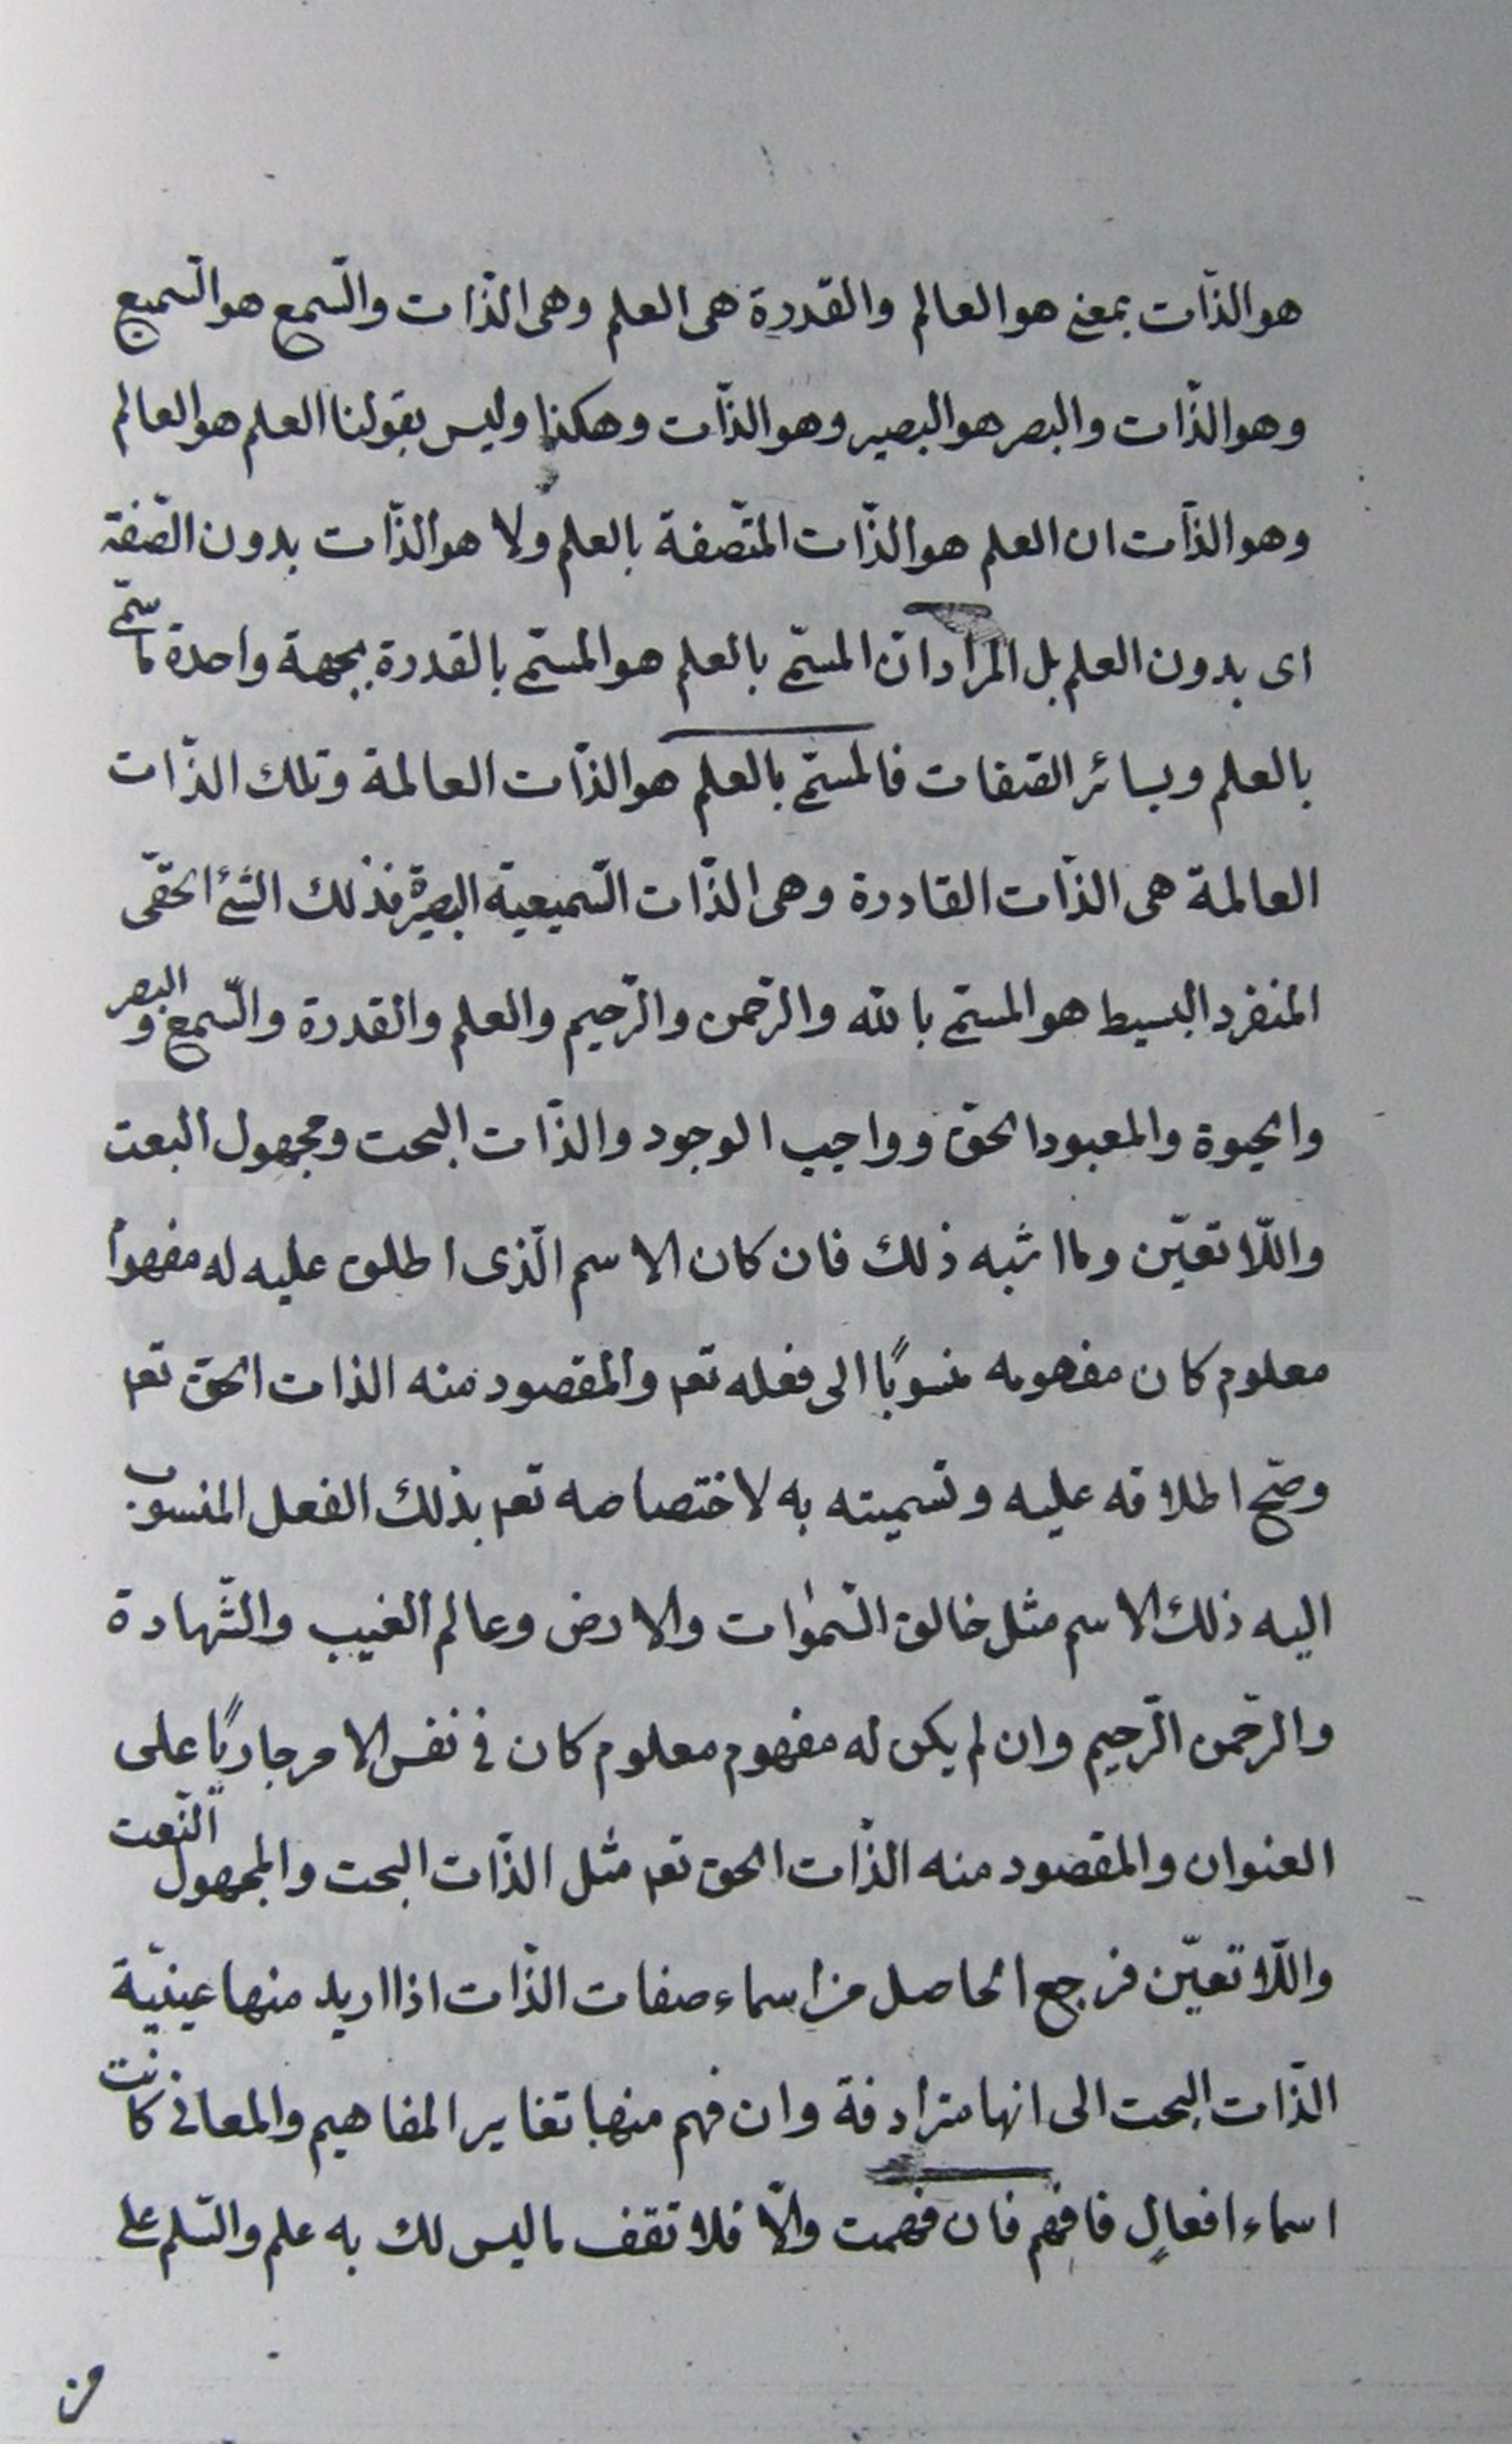 هو الذّات بمعنى هو العالم والقدرة هى العلم وهى الذّات والسّمع هو السّميع
وهو الذّات والبصر هو البصير وهو الذّات وهكذا وليس بقولنا العلم هو العالم
وهو الذّات ان العلم هو الذّات المتّصفة بالعلم ولا هو الذّات بدون الصّفة
اى بدون العلم بل المراد انّ المسمّى بالعلم هو المسمّى بالقدرة بجهة واحدة ما سمّى
بالعلم وبسائر الصّفات فالمسمّى بالعلم هو الذّات العالمة وتلك الذّات
العالمة هى الذّات القادرة وهى الذّات السّميعية البصيرة فذلك الشّئ الحقّى
المنفرد البسيط هو المسمّى بالله والرّحمن والرّحيم والعلم والقدرة والسّمع والبصر
والحيوة والمعبود الحق وواجب الوجود والذّات البحت ومجهول النعت
واللّا تعيّن وما اشبه ذلك فان كان الاسم الّذى اطلق عليه له مفهوم
معلوم كان مفهومه منسوبًا الى فعله تعم والمقصود منه الذات الحق تعم
وصحّ اطلاقه عليه وتسميته به لاختصاصه تعم بذلك الفعل المنسوب
اليه ذلك الاسم مثل خالق السّموٰات والارض وعالم الغيب والشّهادة
والرّحمن الرّحيم وان لم يكن له مفهوم معلوم كان فى نفس الامر جاريًا على
العنوان والمقصود منه الذّات الحق تعم مثل الذّات البحت والمجهول النّعت
واللّا تعيّن فرجع الحاصل من اسماء صفات الذّات اذا اريد منها عينيّة
الذّات البحت الى انها مترادفة وان فهم منها تغاير المفاهيم والمعانى كانت
اسماء افعالٍ فافهم فان فهمت والّا فلا تقف ما ليس لك به علم والسّلم على
من